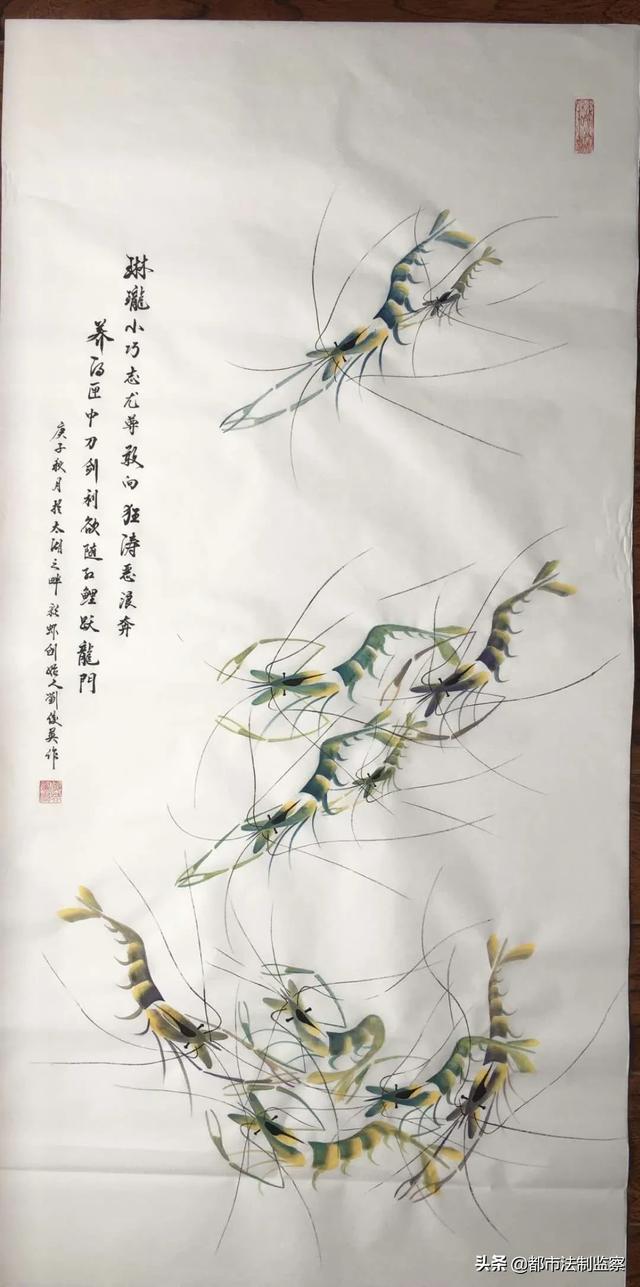 琳瓏小巧志尤尊敢向狂涛恶浪奔
养得匣中刀剑利欲随红鲤跃龍門
庚子秋月於太湖之畔彩虾创始人劉俊英作
头条 @都市法制监察